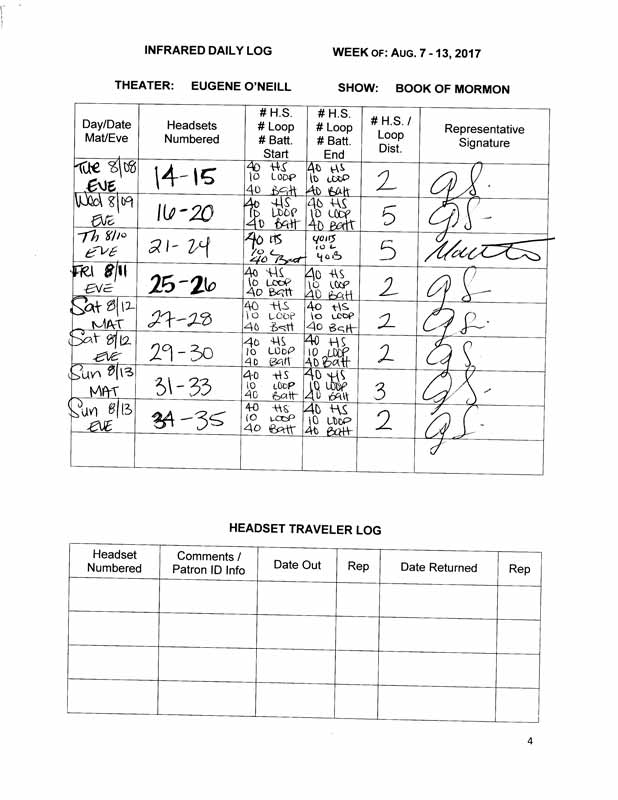 INFRARED DAILY LOG WEEK OF: AUG. 7 - 13, 2017
THEATER: EUGENE O'NEILL SHOW: BOOK OF MORMON
Day/Date Mat/Eve Headsets Numbered # H.S. # Loop # Batt. Start # H.S. # Loop # Batt. End # H.S. / Loop Dist. Representative Signature
Tue 8/08 EVE 14-15 40 HS 10 LOOP 40 Batt 40 HS 10 LOOP 40 Batt 2 GS.
Wed 8/09 EVE 16-20 40 HS 10 LOOP 40 Batt 40 HS 10 LOOP 40 Batt 5 GS-
Th 8/10 EVE 21-24 40 HS 10 L 40 Batt 40 HS 10 L 40 B 5
FRI 8/11 EVE 25-26 40 HS 10 LOOP 40 Batt 40 HS 10 LOOP 40 Batt 2 GS
Sat 8/12 MAT 27-28 40 HS 10 LOOP 40 Batt 40 HS 10 LOOP 40 Batt 2 GS.
Sat 8/12 EVE 29-30 40 HS 10 LOOP 40 Batt 40 HS 10 LOOP 40 Batt 2 GS.
Sun 8/13 MAT 31-33 40 HS 10 LOOP 40 Batt 40 HS 10 LOOP 40 Batt 3 GS.
Sun 8/13 EVE 34-35 40 HS 10 LOOP 40 Batt 40 HS 10 LOOP 40 Batt 2 GS.
HEADSET TRAVELER LOG
Headset Numbered Comments / Patron ID Info Date Out Rep Date Returned Rep
4